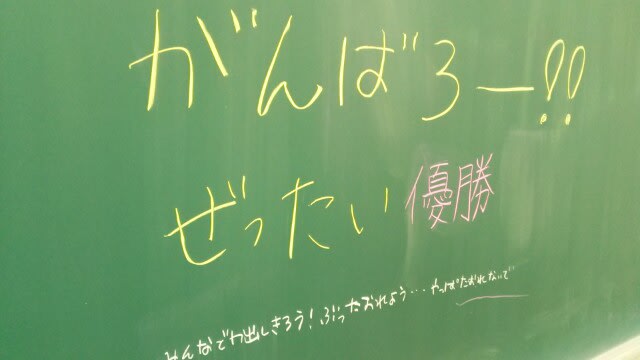 がんばろー!!
ぜったい優勝
みんなで力出しきろう!ぶったおれよう…やっぱたおれないで